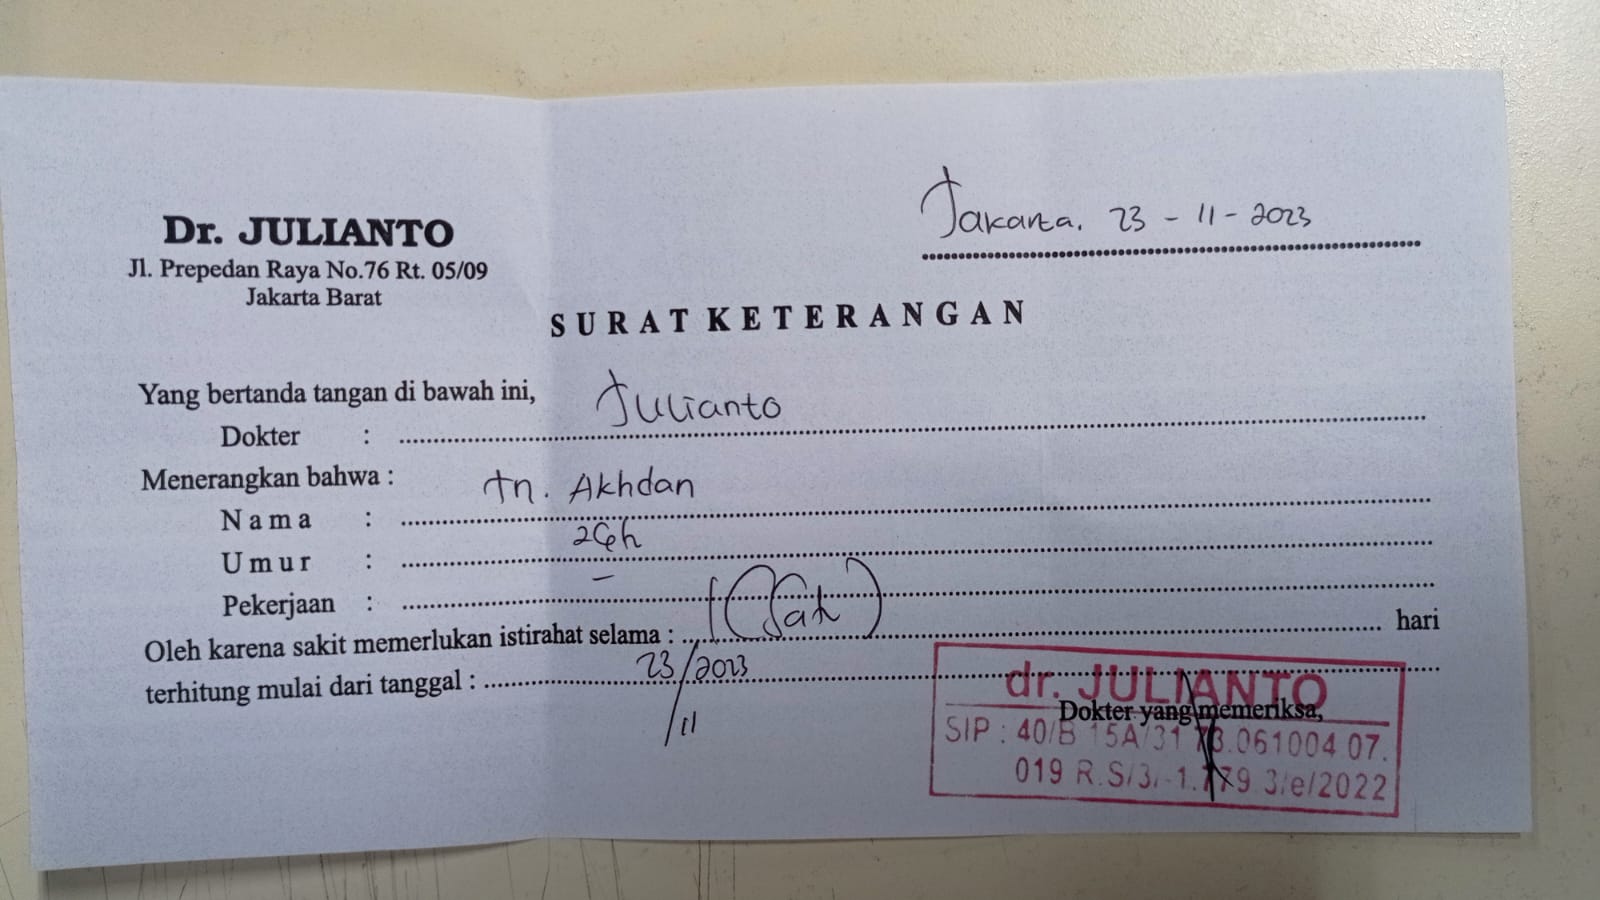 Dr. JULIANTO
Jl. Prepedan Raya No.76 Rt. 05/09
Jakarta Barat
Jakarta. 23 - 11 - 2023
SURAT KETERANGAN
Yang bertanda tangan di bawah ini,
Dokter : Julianto
Menerangkan bahwa :
Nama : tn. Akhdan
Umur :
Pekerjaan : -
Oleh karena sakit memerlukan istirahat selama : 1 (Satu) hari
terhitung mulai dari tanggal : 23/11/2023
Dokter yang memeriksa,
dr. JULIANTO
SIP : 40/B 15A/31 73.061004 07.
019 R.S/3/-1.779.3/e/2022